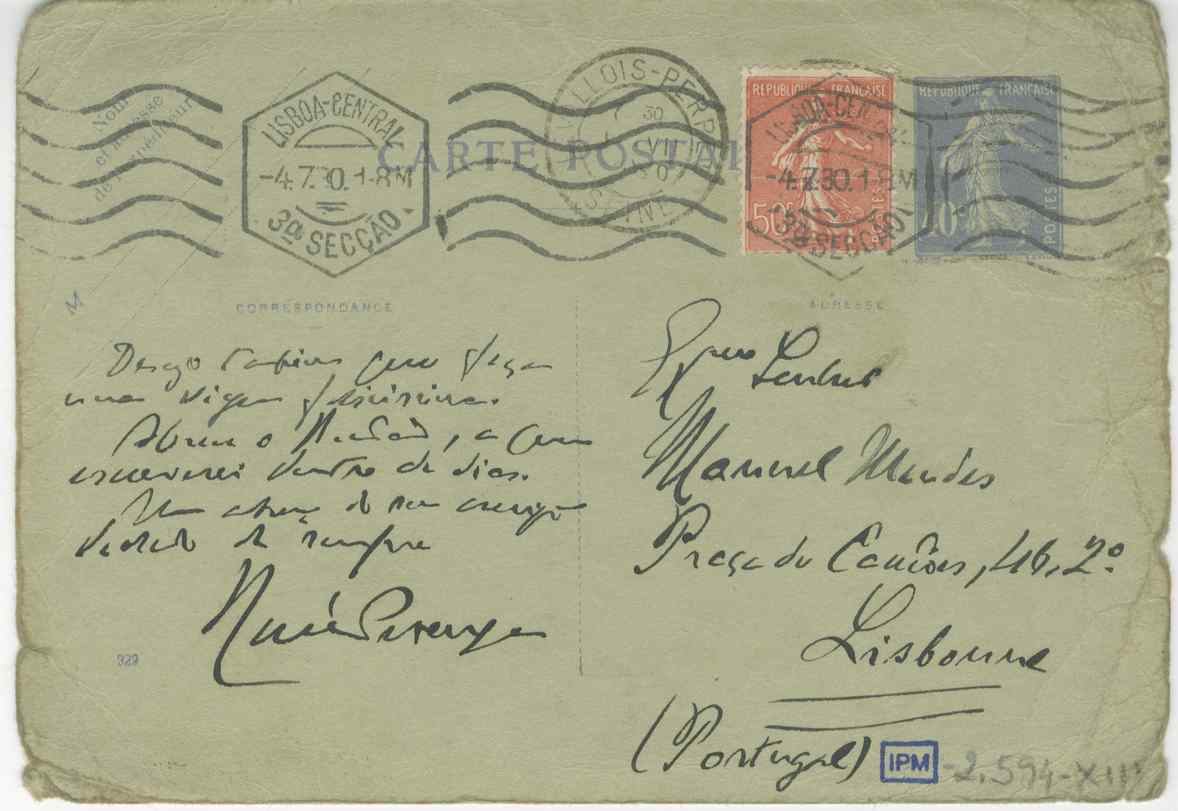 Nom
et adresse
de l'expéditeur
LISBOA-CENTRAL
-4.7.30.1-8M
3ª SECÇÃO
CARTE POSTALE
LLOIS-PERR
7 30
VII
SEINE
REPUBLIQUE FRANÇAISE
50c
POSTES
LISBOA-CENTRAL
-4.7.30.1-8M
3ª SECÇÃO
REPUBLIQUE FRANÇAISE
40c
POSTES
M
CORRESPONDANCE
Desejo também que faça
uma viagem
Abrace o, a quem
escreverei dentro de dias.
Um abraço do seu amigo
de sempre
329
ADRESSE
Exmo Senhor
Manuel Mendes
Praça de Camões, 46, 2º
Lisbonne
(Portugal)
IPM
-2.594-XIII